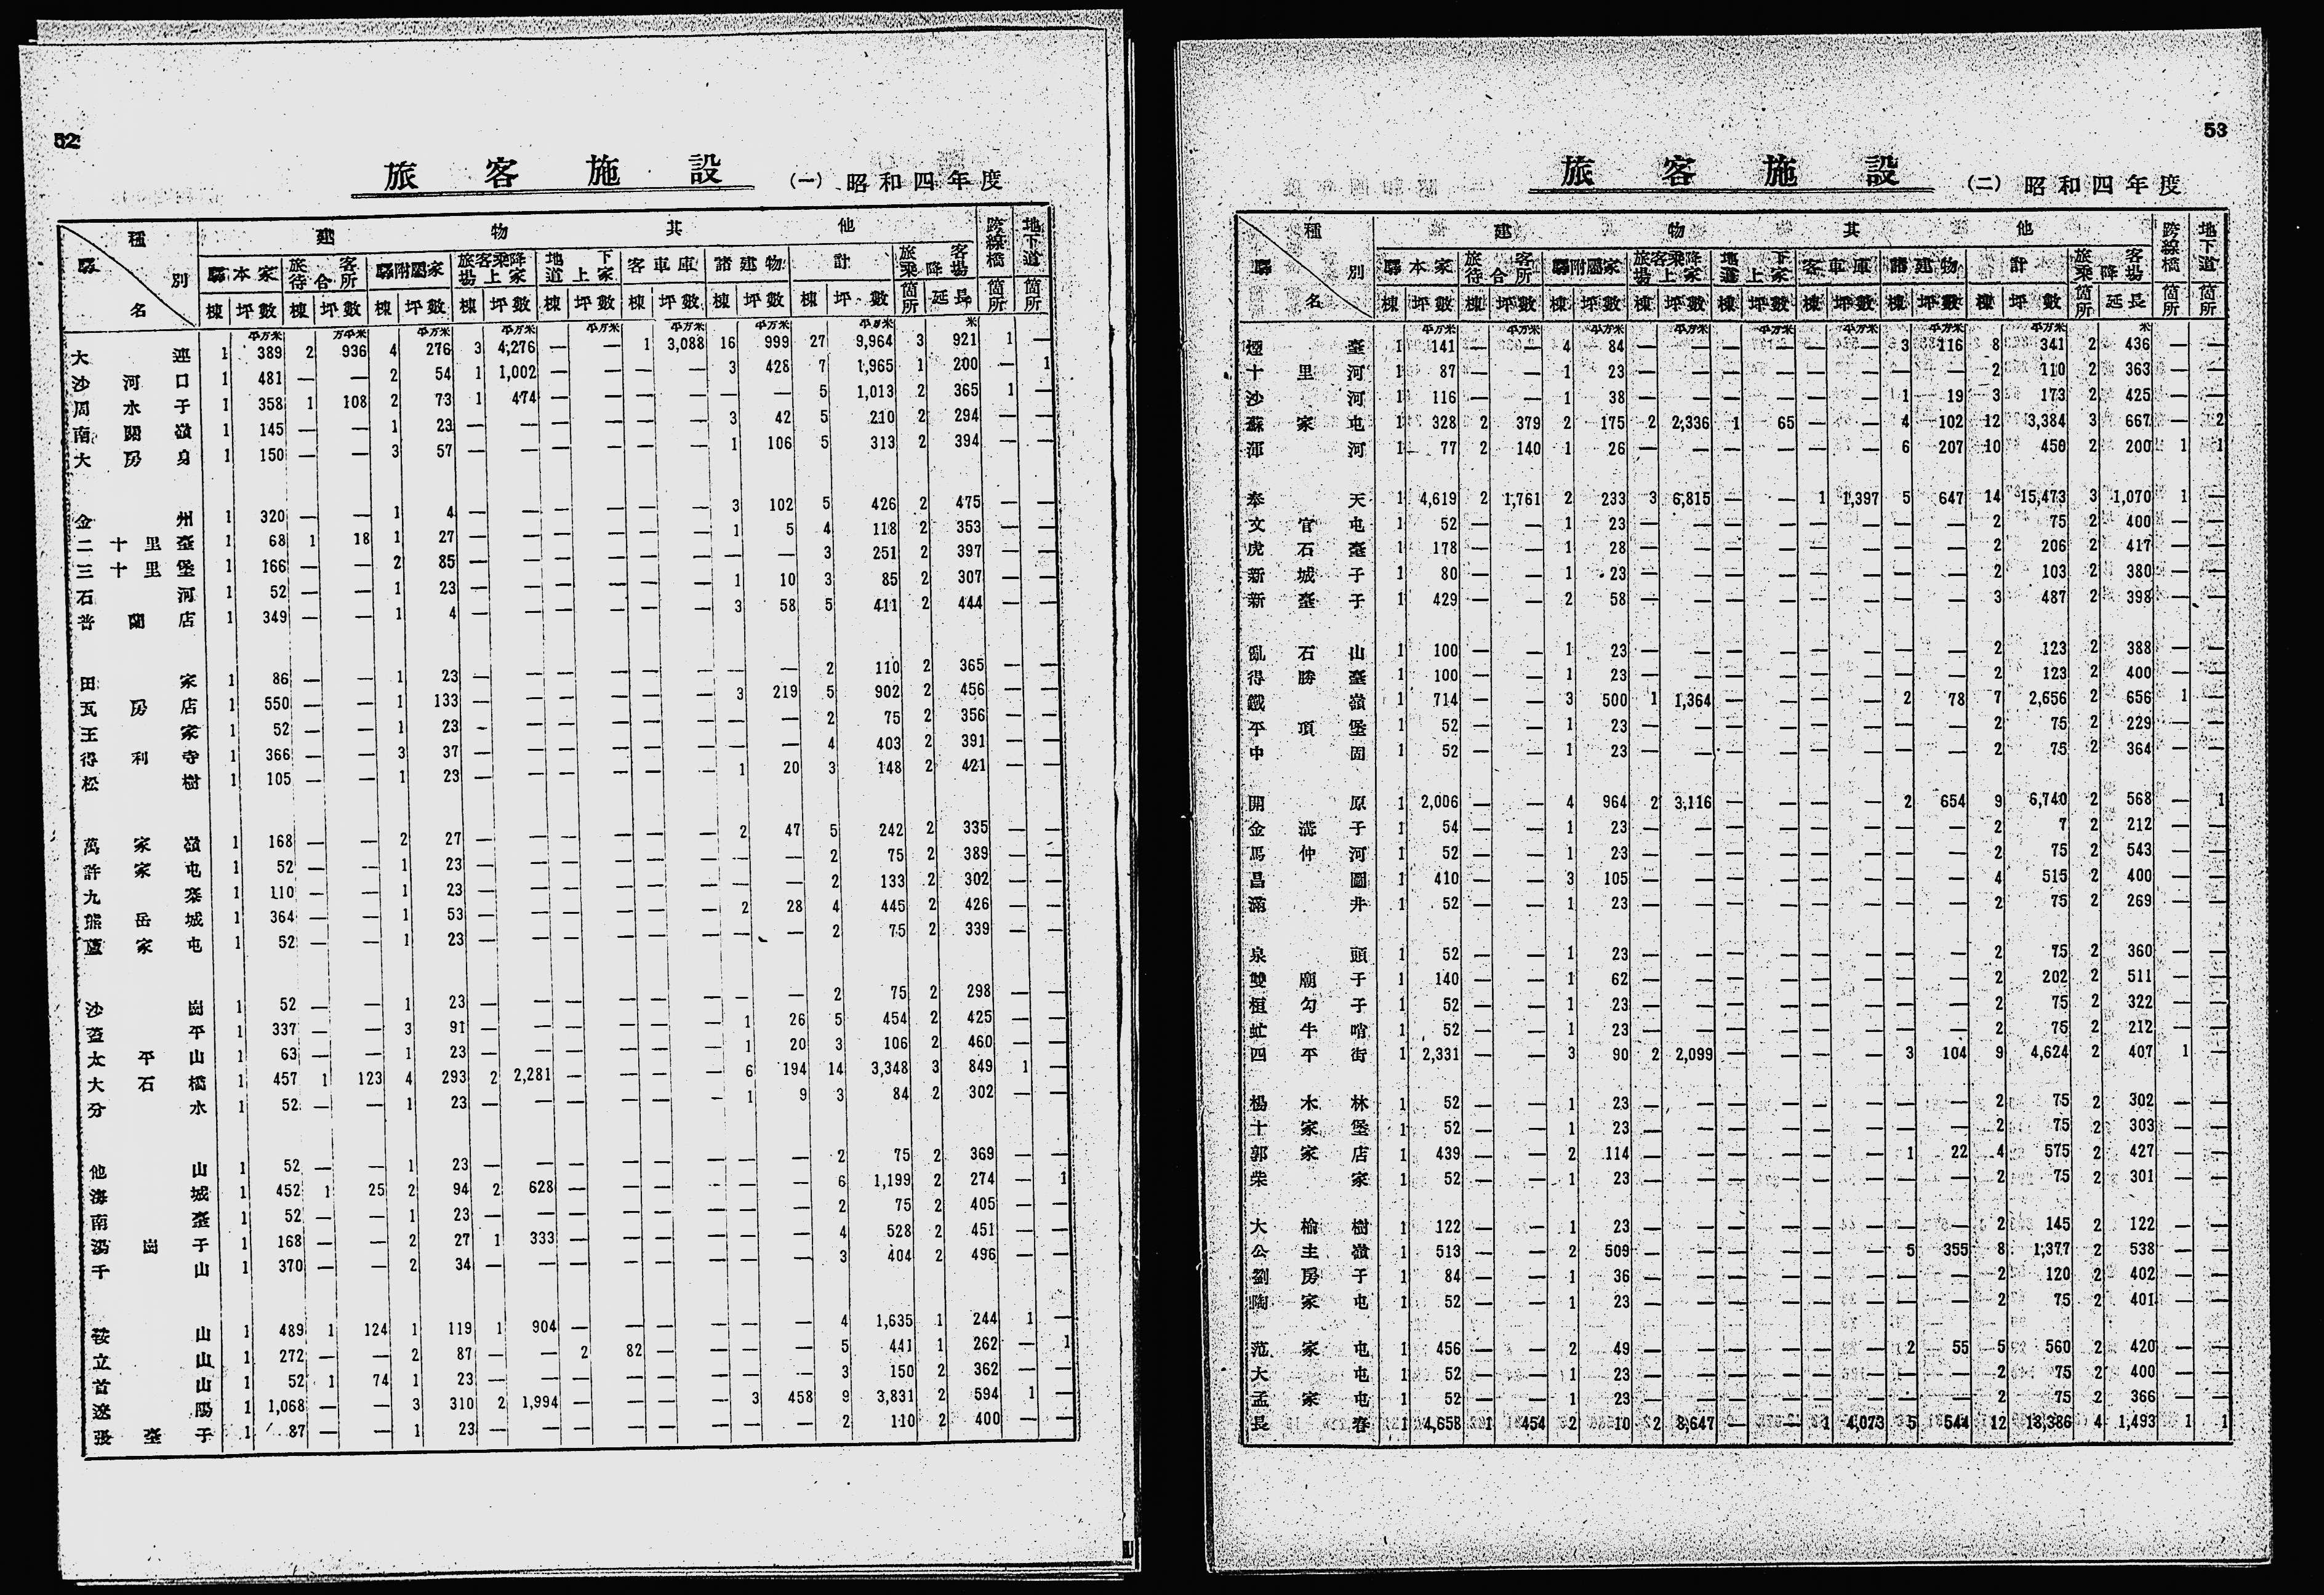 52
旅客施設 (一) 昭和四年度
種別 驛名 建物其他 跨線橋 地下道
驛本家 旅客待合所 驛附屬家 旅客乘降場上家 地下道上家 客車庫 諸建物 計 旅客乘降場
棟 坪數 棟 坪數 棟 坪數 棟 坪數 棟 坪數 棟 坪數 棟 坪數 棟 坪數 箇所 延長 箇所 箇所
平方米 万平米 平方米 平方米 平方米 平方米 平方米 平方米 米
大連 1 389 2 936 4 276 3 4,276 — — 1 3,088 16 999 27 9,964 3 921 1 —
沙河口 1 481 — — 2 54 1 1,002 — — — — 3 428 7 1,965 1 200 — 1
周水子 1 358 1 108 2 73 1 474 — — — — — — 5 1,013 2 365 1 —
南關嶺 1 145 — — 1 23 — — — — — — 3 42 5 210 2 294 — —
大房身 1 150 — — 3 57 — — — — — — 1 106 5 313 2 394 — —
金州 1 320 — — 1 4 — — — — — — 3 102 5 426 2 475 — —
二十里臺 1 68 1 18 1 27 — — — — — — 1 5 4 118 2 353 — —
三十里堡 1 166 — — 2 85 — — — — — — — — 3 251 2 397 — —
石河 1 52 — — 1 23 — — — — — — 1 10 3 85 2 307 — —
普蘭店 1 349 — — 1 4 — — — — — — 3 58 5 411 2 444 — —
田家 1 86 — — 1 23 — — — — — — — — 2 110 2 365 — —
瓦房店 1 550 — — 1 133 — — — — — — 3 219 5 902 2 456 — —
王家 1 52 — — 1 23 — — — — — — — — 2 75 2 356 — —
得利寺 1 366 — — 3 37 — — — — — — — — 4 403 2 391 — —
松樹 1 105 — — 1 23 — — — — — — 1 20 3 148 2 421 — —
萬家嶺 1 168 — — 2 27 — — — — — — 2 47 5 242 2 335 — —
許家屯 1 52 — — 1 23 — — — — — — — — 2 75 2 389 — —
九寨 1 110 — — 1 23 — — — — — — — — 2 133 2 302 — —
熊岳城 1 364 — — 1 53 — — — — — — 2 28 4 445 2 426 — —
蘆家屯 1 52 — — 1 23 — — — — — — — — 2 75 2 339 — —
沙崗 1 52 — — 1 23 — — — — — — — — 2 75 2 298 — —
蓋平 1 337 — — 3 91 — — — — — — 1 26 5 454 2 425 — —
太平山 1 63 — — 1 23 — — — — — — 1 20 3 106 2 460 — —
大石橋 1 457 1 123 4 293 2 2,281 — — — — 6 194 14 3,348 3 849 1 —
分水 1 52 — — 1 23 — — — — — — 1 9 3 84 2 302 — —
他山 1 52 — — 1 23 — — — — — — — — 2 75 2 369 — —
海城 1 452 1 25 2 94 2 628 — — — — — — 6 1,199 2 274 — 1
南臺 1 52 — — 1 23 — — — — — — — — 2 75 2 405 — —
湯崗子 1 168 — — 2 27 1 333 — — — — — — 4 528 2 451 — —
千山 1 370 — — 2 34 — — — — — — — — 3 404 2 496 — —
鞍山 1 489 1 124 1 119 1 904 — — — — — — 4 1,635 1 244 1 —
立山 1 272 — — 2 87 — — 2 82 — — — — 5 441 1 262 — 1
首山 1 52 1 74 1 23 — — — — — — — — 3 150 2 362 — —
遼陽 1 1,068 — — 3 310 2 1,994 — — — — 3 458 9 3,831 2 594 1 —
張臺子 1 87 — — 1 23 — — — — — — — — 2 110 2 400 — —
53
旅客施設 (二) 昭和四年度
種別 驛名 建物其他 跨線橋 地下道
驛本家 旅客待合所 驛附屬家 旅客乘降場上家 地下道上家 客車庫 諸建物 計 旅客乘降場
棟 坪數 棟 坪數 棟 坪數 棟 坪數 棟 坪數 棟 坪數 棟 坪數 棟 坪數 箇所 延長 箇所 箇所
平方米 平方米 平方米 平方米 平方米 平方米 平方米 平方米 米
煙臺 1 141 — — 4 84 — — — — — — 3 116 8 341 2 436 — —
十里河 1 87 — — 1 23 — — — — — — — — 2 110 2 363 — —
沙河 1 116 — — 1 38 — — — — — — 1 19 3 173 2 425 — —
蘇家屯 1 328 2 379 2 175 2 2,336 1 65 — — 4 102 12 3,384 3 667 — 2
渾河 1 77 2 140 1 26 — — — — — — 6 207 10 450 2 200 1 1
奉天 1 4,619 2 1,761 2 233 3 6,815 — — 1 1,397 5 647 14 15,473 3 1,070 1 —
文官屯 1 52 — — 1 23 — — — — — — — — 2 75 2 400 — —
虎石臺 1 178 — — 1 28 — — — — — — — — 2 206 2 417 — —
新城子 1 80 — — 1 23 — — — — — — — — 2 103 2 380 — —
新臺子 1 429 — — 2 58 — — — — — — — — 3 487 2 398 — —
亂石山 1 100 — — 1 23 — — — — — — — — 2 123 2 388 — —
得勝臺 1 100 — — 1 23 — — — — — — — — 2 123 2 400 — —
鐵嶺 1 714 — — 3 500 1 1,364 — — — — 2 78 7 2,656 2 656 1 —
平頂堡 1 52 — — 1 23 — — — — — — — — 2 75 2 229 — —
中固 1 52 — — 1 23 — — — — — — — — 2 75 2 364 — —
開原 1 2,006 — — 4 964 2 3,116 — — — — 2 654 9 6,740 2 568 — 1
金溝子 1 54 — — 1 23 — — — — — — — — 2 7 2 212 — —
馬仲河 1 52 — — 1 23 — — — — — — — — 2 75 2 543 — —
昌圖 1 410 — — 3 105 — — — — — — — — 4 515 2 400 — —
滿井 1 52 — — 1 23 — — — — — — — — 2 75 2 269 — —
泉頭 1 52 — — 1 23 — — — — — — — — 2 75 2 360 — —
雙廟子 1 140 — — 1 62 — — — — — — — — 2 202 2 511 — —
桓勾子 1 52 — — 1 23 — — — — — — — — 2 75 2 322 — —
虻牛哨 1 52 — — 1 23 — — — — — — — — 2 75 2 212 — —
四平街 1 2,331 — — 3 90 2 2,099 — — — — 3 104 9 4,624 2 407 1 —
楊木林 1 52 — — 1 23 — — — — — — — — 2 75 2 302 — —
十家堡 1 52 — — 1 23 — — — — — — — — 2 75 2 303 — —
郭家店 1 439 — — 2 114 — — — — — — 1 22 4 575 2 427 — —
柴家 1 52 — — 1 23 — — — — — — — — 2 75 2 301 — —
大榆樹 1 122 — — 1 23 — — — — — — — — 2 145 2 122 — —
公主嶺 1 513 — — 2 509 — — — — — — 5 355 8 1,377 2 538 — —
劉房子 1 84 — — 1 36 — — — — — — — — 2 120 2 402 — —
陶家屯 1 52 — — 1 23 — — — — — — — — 2 75 2 401 — —
范家屯 1 456 — — 2 49 — — — — — — 2 55 5 560 2 420 — —
大屯 1 52 — — 1 23 — — — — — — — — 2 75 2 400 — —
孟家屯 1 52 — — 1 23 — — — — — — — — 2 75 2 366 — —
長春 1 4,658 1 454 2 10 2 8,647 — — 1 4,073 5 544 12 18,386 4 1,493 1 1